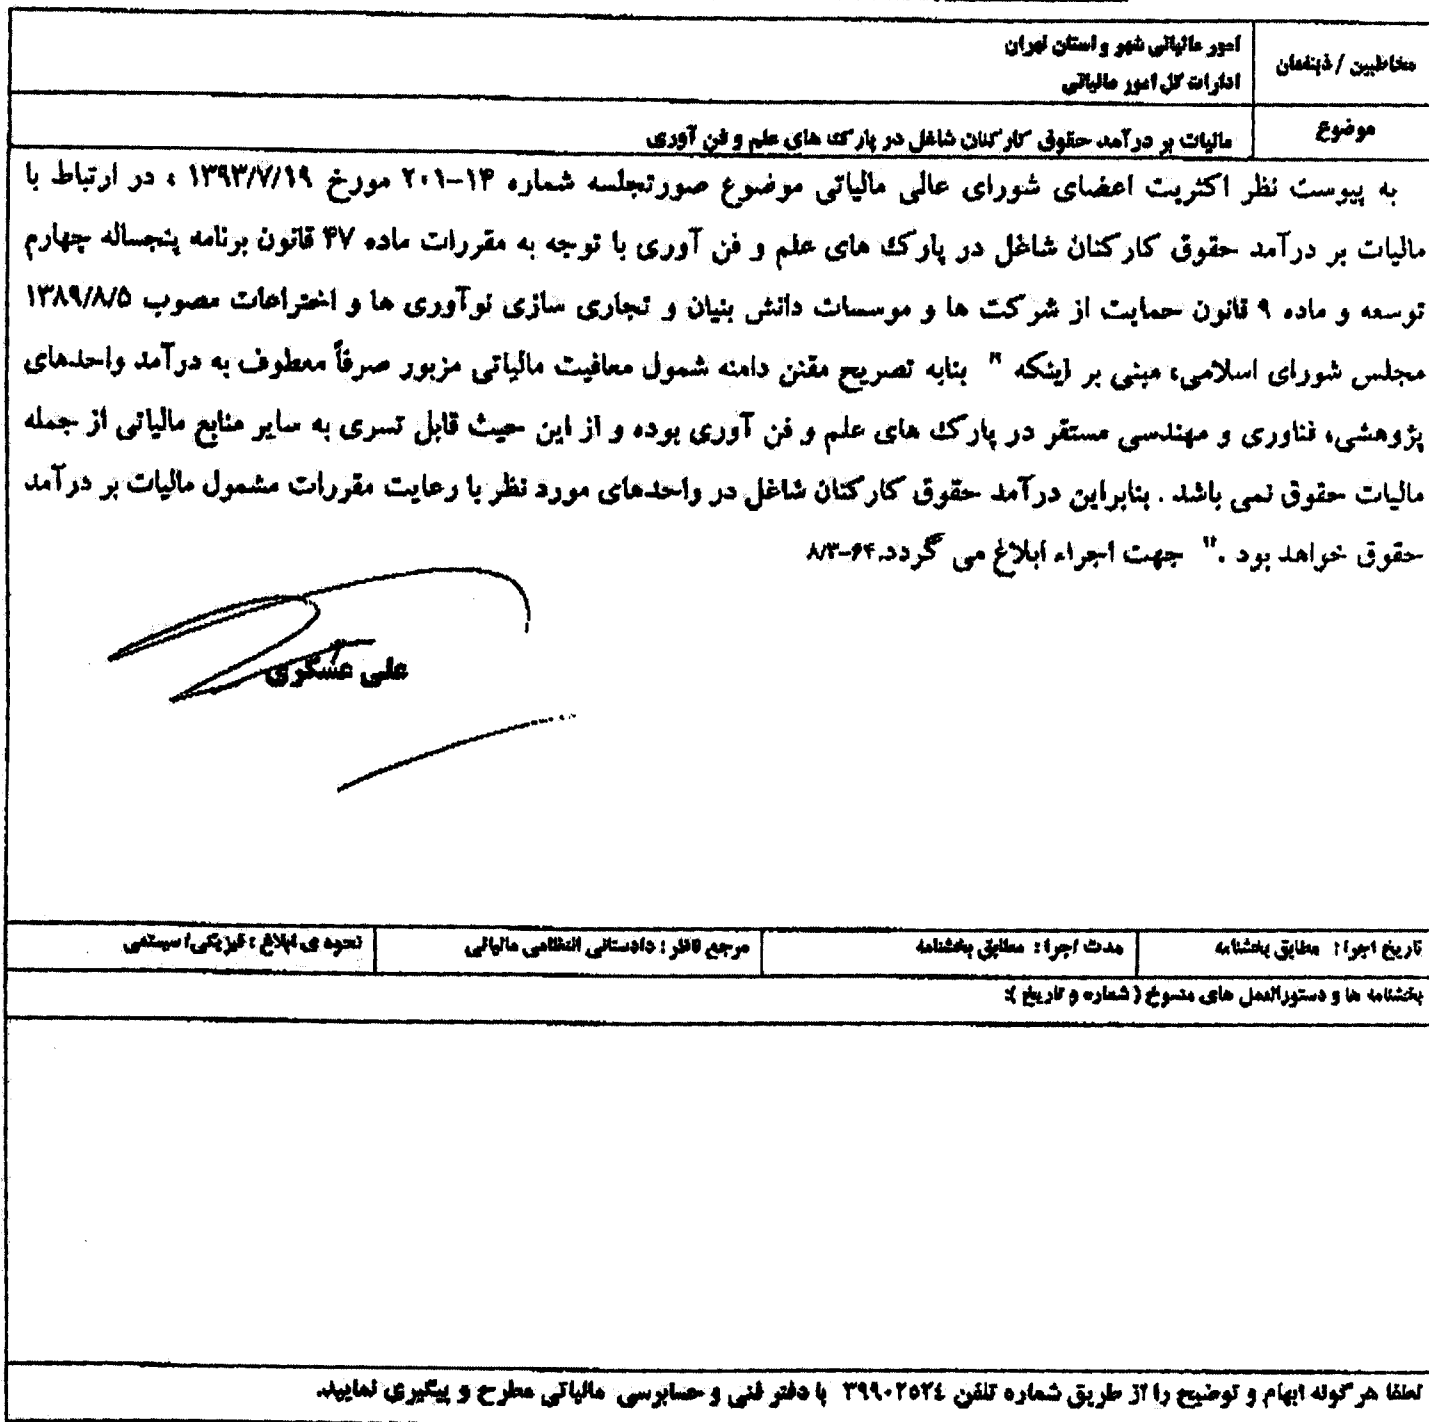 مخاطبین / ذینفعان
امور مالیاتی شهر و استان تهران
ادارات کل امور مالیاتی
موضوع
مالیات بر درآمد حقوق کارکنان شاغل در پارک های علم و فن آوری
به پیوست نظر اکثریت اعضای شورای عالی مالیاتی موضوع صورتجلسه شماره ۱۴-۲۰۱ مورخ ۱۳۹۳/۷/۱۹ ، در ارتباط با
مالیات بر درآمد حقوق کارکنان شاغل در پارک های علم و فن آوری با توجه به مقررات ماده ۴۷ قانون برنامه پنجساله چهارم
توسعه و ماده ۹ قانون حمایت از شرکت ها و موسسات دانش بنیان و تجاری سازی نوآوری ها و اختراعات مصوب ۱۳۸۹/۸/۵
مجلس شورای اسلامی، مبنی بر اینکه " بنابه تصریح مقنن دامنه شمول معافیت مالیاتی مزبور صرفاً معطوف به درآمد واحدهای
پژوهشی، فناوری و مهندسی مستقر در پارک های علم و فن آوری بوده و از این حیث قابل تسری به سایر منابع مالیاتی از جمله
مالیات حقوق نمی باشد . بنابراین درآمد حقوق کارکنان شاغل در واحدهای مورد نظر با رعایت مقررات مشمول مالیات بر درآمد
حقوق خواهد بود ." جهت اجراء ابلاغ می گردد.۶۴-۸/۳
علی عسگری
تاریخ اجرا : مطابق بخشنامه
مدت اجرا : مطابق بخشنامه
مرجع ناظر : دادستانی انتظامی مالیاتی
نحوه ی ابلاغ : فیزیکی/ سیستمی
بخشنامه ها و دستورالعمل های منسوخ ( شماره و تاریخ ):
لطفا هر گونه ابهام و توضیح را از طریق شماره تلفن ۳۹۹۰۲۵۲۴ با دفتر فنی و حسابرسی مالیاتی مطرح و پیگیری نمایید.